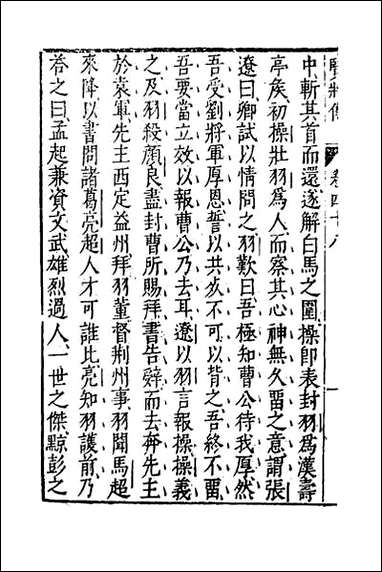 卷四十八
中斬其首而還遂解白馬之圍操卽表封羽爲漢壽
亭矦初操壯羽爲人而察其心神無久畱之意謂張
遼曰卿試以情問之羽歎曰吾極知曹公待我厚然
吾受劉將軍厚恩誓以共死不可以背之吾終不畱
吾要當立效以報曹公乃去耳遼以羽言報操操義
之及羽殺顔良盡封曹所賜拜書告辭而去奔先主
於袁軍先主西定益州拜羽董督荆州事羽聞馬超
來降以書問諸葛亮超人才可誰比亮知羽護前乃
荅之曰孟起兼資文武雄烈過人一世之傑黥彭之